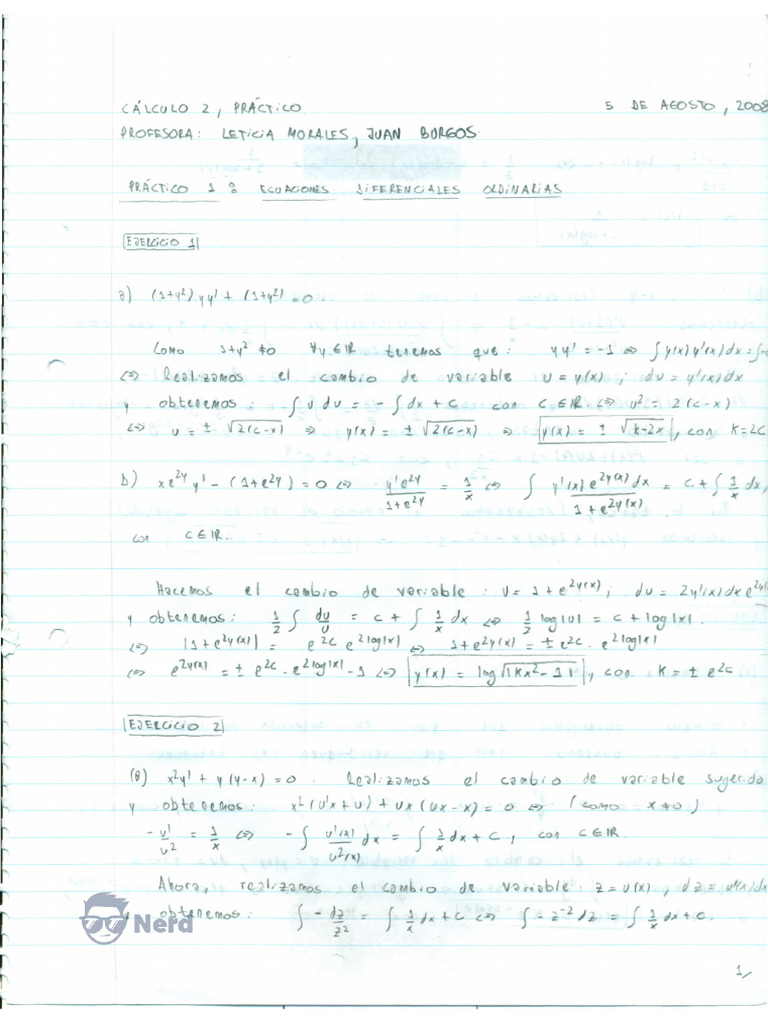 CÁLCULO 2, PRÁCTICO. 5 DE AGOSTO, 2008
PROFESORA: LETICIA MORALES, JUAN BURGOS.
PRÁCTICO 1: ECUACIONES DIFERENCIALES ORDINARIAS
EJERCICIO 1
a) (1+y²)yy' + (1+y²) = 0.
Como 1+y² ≠ 0 ∀y ∈ IR tenemos que: yy' = -1 ⇔ ∫y(x)y'(x)dx = ∫-
⇔ Realizamos el cambio de variable u = y(x); du = y'(x)dx
y obtenemos: ∫u du = -∫dx + c con c ∈ IR. ⇔ u² = 2(c-x)
⇔ u = ± √2(c-x) ⇒ y(x) = ± √2(c-x) ⇒ y(x) = ± √k-2x, con k=2c
b) xe^2y y' - (1+e^2y) = 0 ⇔ y'e^2y/1+e^2y = 1/x ⇔ ∫ y'(x)e^2y(x)dx/1+e^2y(x) = c + ∫1/x dx,
con c ∈ IR.
Hacemos el cambio de variable: u = 1+e^2y(x); du = 2y'(x)dx e^2y(
y obtenemos: 1/2 ∫du/u = c + ∫1/x dx ⇔ 1/2 log|u| = c + log|x|.
⇔ |1+e^2y(x)| = e^2c e^2log|x| ⇔ 1+e^2y(x) = ± e^2c · e^2log|x|
⇔ e^2y(x) = ± e^2c · e^2log|x| - 1 ⇔ y(x) = log√|kx²-1|, con k = ± e^2c
EJERCICIO 2
(a) x²y' + y(y-x) = 0. Realizamos el cambio de variable sugerido
y obtenemos: x²(u'x+u) + ux(ux-x) = 0 ⇔ (como x≠0)
-u'/u² = 1/x ⇔ -∫u'(x)/u²(x) dx = ∫1/x dx + c, con c ∈ IR.
Ahora, realizamos el cambio de variable: z = u(x), dz = u'(x)dx
y obtenemos: ∫-dz/z² = ∫1/x dx + c ⇔ ∫-z^-2 dz = ∫1/x dx + c.
Nerd
1/